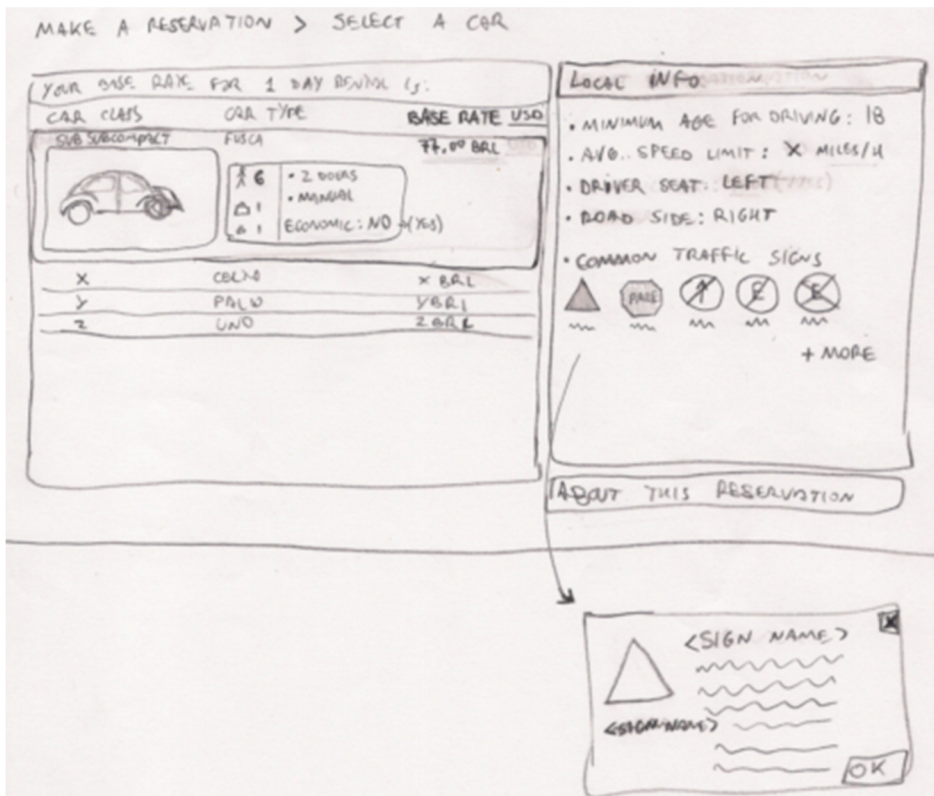 MAKE A RESERVATION > SELECT A CAR
YOUR BASE RATE FOR 1 DAY RENTAL IS:
CAR CLASS CAR TYPE BASE RATE USD
SUB SUBCOMPACT FUSCA 77,00 BRL
6 • 2 DOORS
1 • MANUAL
1 ECONOMIC: NO (YES)
X CELTA X BRL
Y PALIO Y BRL
Z UNO Z BRL
LOCAL INFO
• MINIMUM AGE FOR DRIVING: 18
• AVG. SPEED LIMIT: X MILES/H
• DRIVER SEAT: LEFT
• ROAD SIDE: RIGHT
• COMMON TRAFFIC SIGNS
PARE E E
+ MORE
ABOUT THIS RESERVATION
X
<SIGN NAME>
<SIGN NAME>
OK